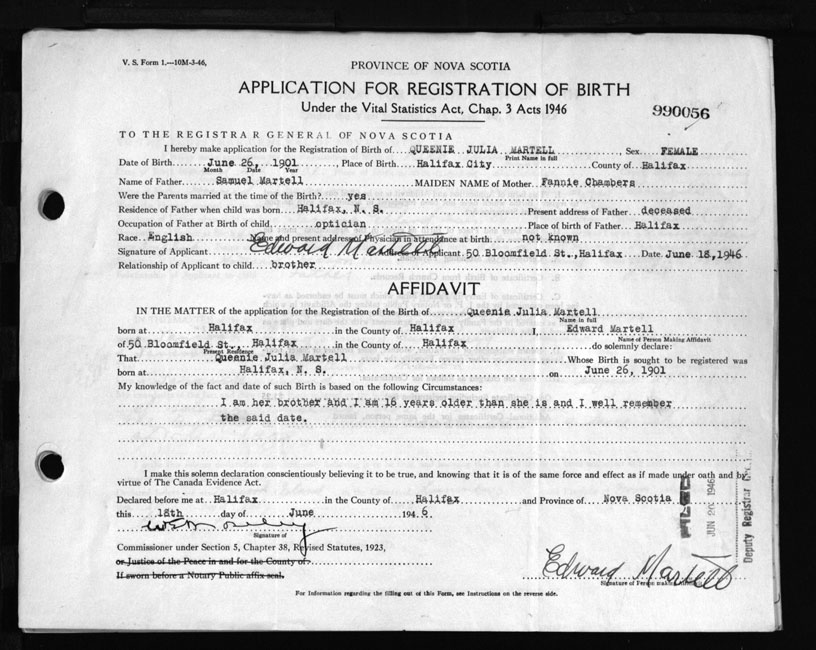 V. S. Form 1.—10M-3-46,
PROVINCE OF NOVA SCOTIA
APPLICATION FOR REGISTRATION OF BIRTH
Under the Vital Statistics Act, Chap. 3 Acts 1946
990056
TO THE REGISTRAR GENERAL OF NOVA SCOTIA
I hereby make application for the Registration of Birth of QUEENIE JULIA MARTELL, Sex FEMALE
Print Name in full
Date of Birth June 26, 1901, Place of Birth Halifax City County of Halifax
Month Date Year
Name of Father Samuel Martell MAIDEN NAME of Mother Fannie Chambers
Were the Parents married at the time of the Birth? yes
Residence of Father when child was born Halifax, N. S. Present address of Father deceased
Occupation of Father at Birth of child optician Place of birth of Father Halifax
Race English Name and present address of Physician in attendance at birth not known
Signature of Applicant Edward Martell Address of Applicant 50 Bloomfield St., Halifax Date June 18, 1946
Relationship of Applicant to child brother
AFFIDAVIT
IN THE MATTER of the application for the Registration of the Birth of Queenie Julia Martell
Name in full
born at Halifax in the County of Halifax I, Edward Martell
Name of Person Making Affidavit
of 50 Bloomfield St., Halifax in the County of Halifax do solemnly declare:
Present Residence
That Queenie Julia Martell Whose Birth is sought to be registered was
born at Halifax, N. S. on June 26, 1901
My knowledge of the fact and date of such Birth is based on the following Circumstances:
I am her brother and I am 16 years older than she is and I well remember
the said date.
I make this solemn declaration conscientiously believing it to be true, and knowing that it is of the same force and effect as if made under oath and by
virtue of The Canada Evidence Act.
Declared before me at Halifax in the County of Halifax and Province of Nova Scotia
this 18th day of June 1946
Signature of
Commissioner under Section 5, Chapter 38, Revised Statutes, 1923,
or Justice of the Peace in and for the County of
If sworn before a Notary Public affix seal.
Edward Martell
Signature of Person making Affidavit
JUN 26 1946
Deputy Registrar
For Information regarding the filling out of this Form, see Instructions on the reverse side.